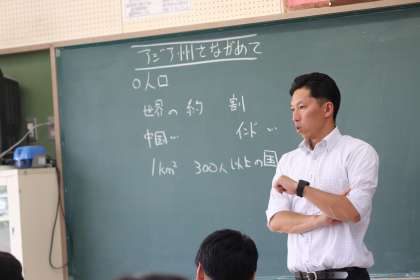 アジア州をながめて
○人口
世界の約 割
中国… インド…
1km² 300人以上の国